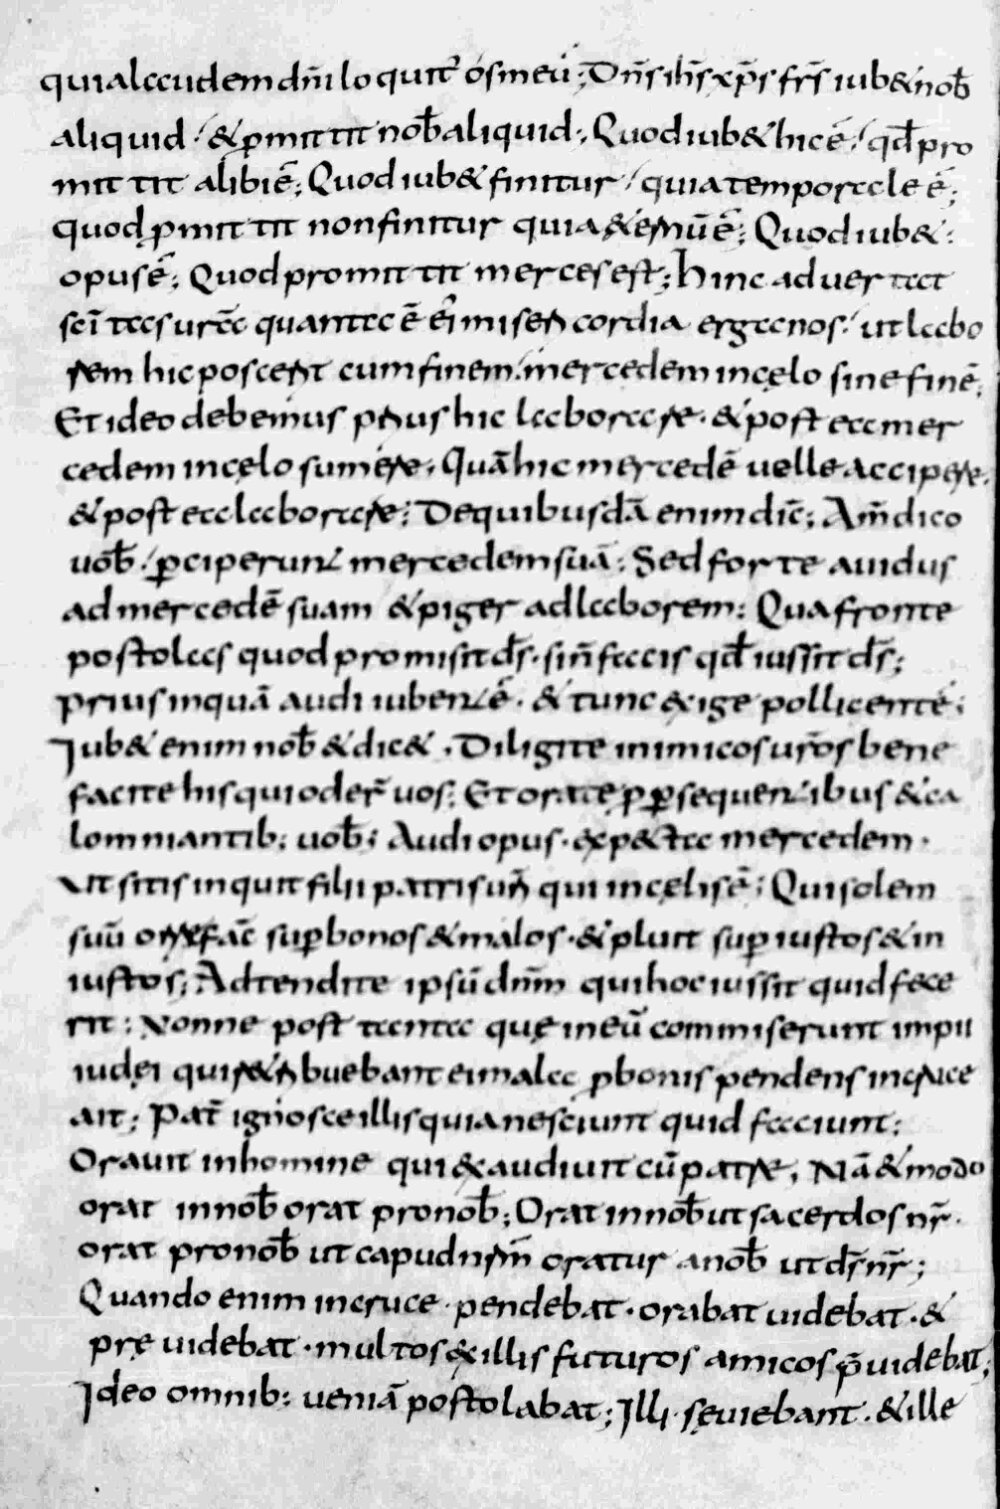 quia laudem dn̄i loquit᷑ os meū; Dn̄s ih̄s xp̄s fr̄s iub& nob̄
aliquid / & ꝓmittit nob̄ aliquid; Quod iub& hic ē / qd̄ pro
mittit alibi ē; Quod iub& finitur / quia temporale ē;
quod ꝓmittit non finitur quia &ernū ē; Quod iub&
opus ē; Quod promittit merces est; Hinc aduertat
sc̄itas ur̄a quanta ē ei misericordia erga nos / ut labo
rem hic poscerit cum finem / mercedem in cęlo sine finē;
Et ideo debemus prius hic laborare · & postea mer
cedem in cęlo sumere, Quā hic mercedē uelle accipere
& postea laborare; De quibusdā enim dic̄; Am̄ dico
uob̄ / ꝑciperunt mercedem suā; Sed forte auidus
ad mercedē suam & piger ad laborem; Qua fronte
postolas quod promisit d̄s · si n̄ facis qd̄ iussit d̄s;
prius inquā audi iubentē · & tunc exige pollicentē;
Iub& enim nob̄ & dic& · Diligite inimicos ur̄os bene
facite his qui oder̄ uos; Et orate ꝓ ꝑsequentibus & ca
lomniantib; uob̄; Audi opus · exp&ta mercedem ·
Ut sitis inquit filii patris ur̄i qui in cęlis ē; Qui solem
suū orire fac̄ suꝑ bonos & malos · & pluit suꝑ iustos & in
iustos; Adtendite ipsū dn̄m quihoc iussit quid fece
rit; Nonne post tanta quę in eū commiserunt impii
iudęi qui r&ribuebant ei mala ꝓ bonis pendens in cruce
ait; Pat̄ ignosce illis quia nesciunt quid faciunt;
Orauit in homine qui exaudiuit cū patre, Nā & modo
orat in nob̄ orat pro nob̄; Orat in nob̄ ut sacerdos nr̄ ·
orat pro nob̄ ut capud nr̄m oratur a nob̄ ut d̄s nr̄;
Quando enim in cruce · pendebat · orabat uidebat · &
prę uidebat · multos ex illis futuros amicos p̄uidebat;
Ideo omnib; ueniā postolabat; Illi · sęuiebant · & ille